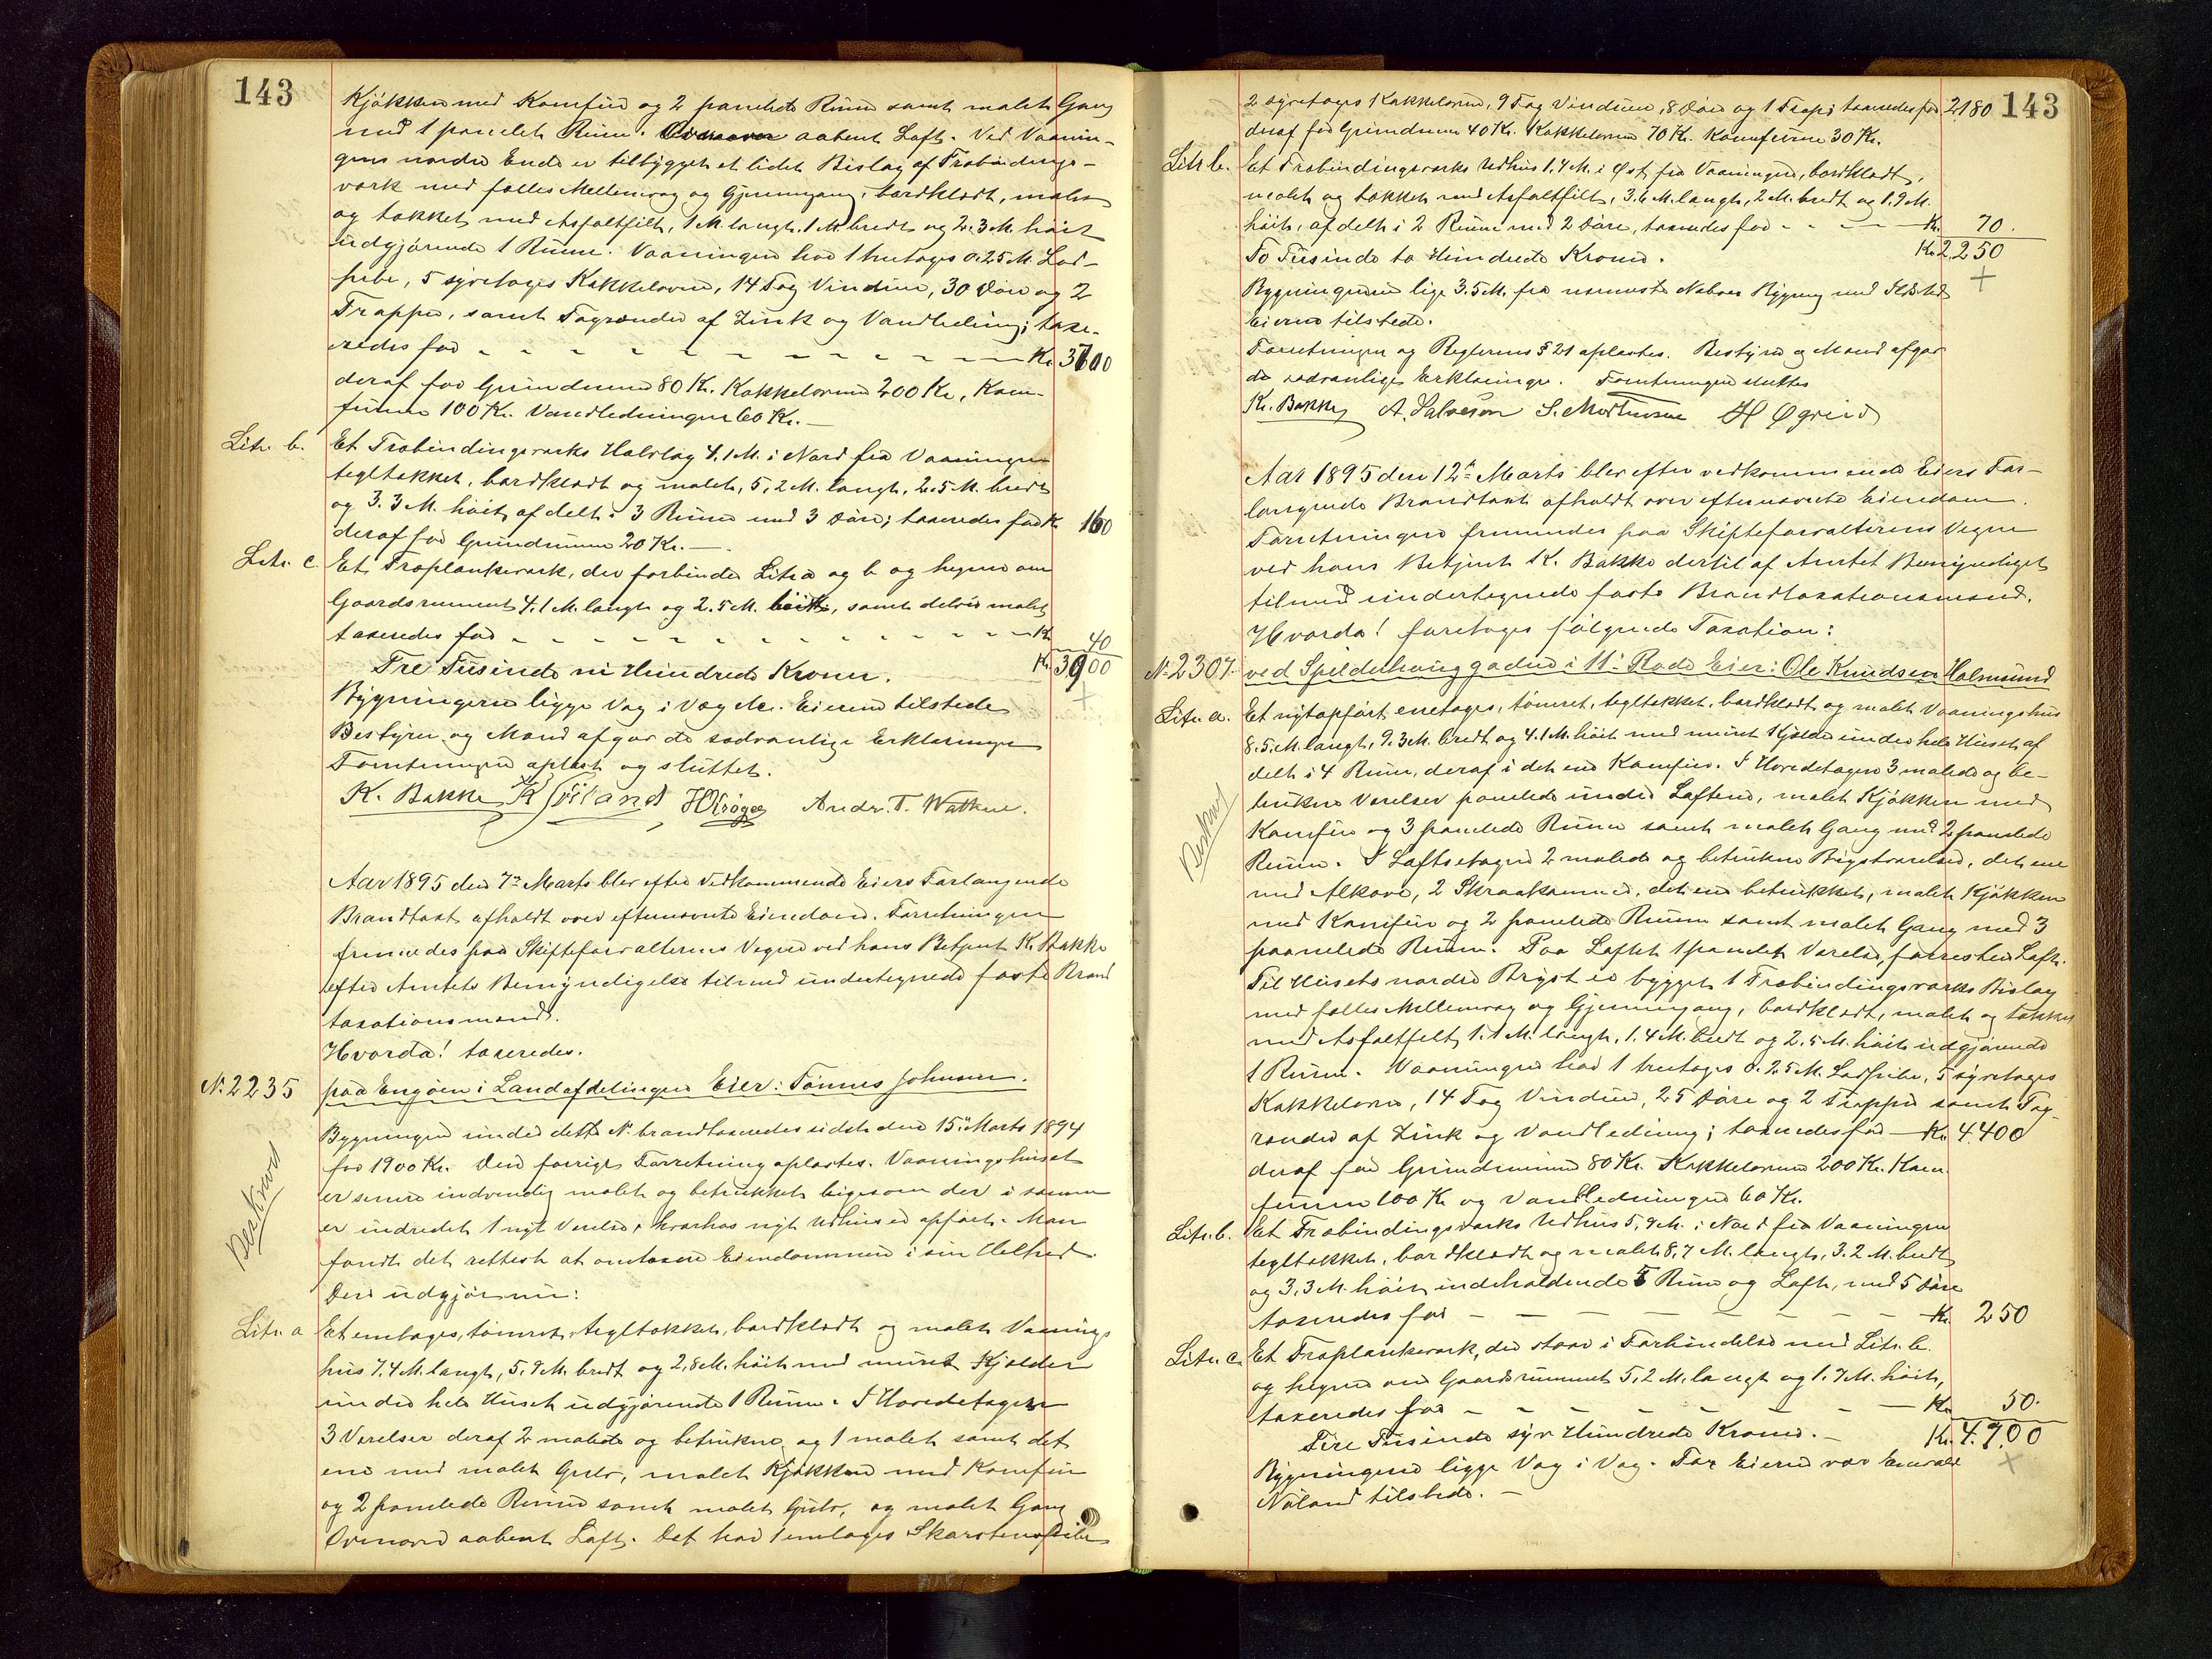 143
Kjökken med Komfur og 2 panelede Rum samt malet Gang
med 1 panelet Rum. Ovenover aabent Loft. Ved Vaanin-
gens nordre Ende er tilbygget et lidet Bislag af Træbindings-
værk med fælles Mellemvæg og Gjennemgang, bordklædt, malet
og tækket med Asfaltfilt, 1 M. langt, 1 M. bredt og 2.3 M. höit
udgjörende 1 Rum. Vaaningen har 1 treetages 0.25 M. Lod-
pibe, 5 syvetages Kakkelovne, 14 Fag Vinduer, 30 Döre og 2
Trapper, samt Tagrender af Zink og Vandledning; taxe-
redes for - - - - - - - - - - - - Kr. 3700
deraf for Grundmuren 80 Kr. Kakkelovnene 200 Kr., Kom-
furene 100 Kr. Vandledningen 60 Kr. —
Litr. b. Et Træbindingsværks Halvtag 4.1 M. i Nord fra Vaaningen
tegltækket, bordklædt og malet, 5,2 M. langt, 2.5 M. bredt
og 3.3 M. höit, afdelt i 3 Rum med 3 Döre; taxeredes for K. 160
deraf for Grundmuren 20 Kr. —
Litr. c. Et Træplankeværk, der forbinder Litr. a og b og hegner om
Gaardsrummet 4.1 M. langt og 2.5 M. höit, samt delvis malet
taxeredes for - - - - - - - - - - - - Kr. 40
Tre Tusinde ni Hundrede Kroner. Kr. 3900
Bygningerne ligge Væg i Væg etc. Eieren tilstede
Bestyrer og Mænd afgav de sædvanlige Erklæringer
Forretningen oplæst og sluttet.
K. Bakke Andr. T. Watne.
Aar 1895 den 7de Marts blev efter Vedkommende Eiers Forlangende
Brandtaxt afholdt over efternævnte Eiendom. Forretningen
fremmedes paa Skifteforvalterens Vegne ved hans Betjent K. Bakke
efter Amtets Bemyndigelse tilmed undertegnede faste Brand
taxationsmænd.
Hvorda! taxeredes.
N. 2235 paa Engöen i Landafdelingen Eier: Tönnes Johnsen.
Bygningen under dette No brandtaxeredes sidst den 15de Marts 1894
for 1900 Kr. Den forrige Forretning oplæstes. Vaaningshuset
er senere indvendig malet og betrukket ligesom der i samme
er indredet 1 nyt Værelse, hvorhos nyt Udhus er opfört. Man
fandt det rettest at omtaxere Eiendommen i sin Helhed.
Den udgjör nu:
Beskrevet
Litr. a Et enetages, tömret, tegltækket, bordklædt og malet Vaanings
hus 7.4 M. langt, 5,9 M. bredt og 2,8 M. höit med muret Kjelder
under hele Huset udgjörende 1 Rum. I Hovedetagen
3 Værelser deraf 2 malede og betrukne og 1 malet samt det
ene med malet Gulv, malet Kjökken med Komfur
og 2 panelede Rum samt malet Gulv, og malet Gang
Ovenover aabent Loft. Det har 1 enetages Skorstenspibe
143
2 syvetages Kakkelovne, 9 Fag Vinduer, 8 Döre og 1 Trap; taxeredes for 2180
deraf for Grundmuren 40 Kr. Kakkelovnene 70 Kr. Komfurene 30 Kr.
Litr. b. Et Træbindingsværks Udhus 1,4 M. i Öst fra Vaaningen, bordklædt,
malet og tækket med Asfaltfilt, 3.6 M. langt, 2 M. bredt og 1.9 M.
höit, afdelt i 2 Rum med 2 Döre, taxeredes for - - - - Kr. 70.
To Tusinde to Hundrede Kroner. Kr. 2,250
Bygningerne lige 3.5 M. fra nærmeste Nabos Bygning med Ildsted
Eieren tilstede.
Forretningen og Reglernes § 21 oplæstes. Bestyrer og Mænd afgav
de sædvanlige Erklæringer. Forretningen sluttet
K. Bakke A. Salvesen S. Mortensen H Ögreid
Aar 1895 den 12te Marts blev efter vedkommende Eiers For-
langende Brandtaxt afholdt over efternævnte Eiendom.
Forretningen fremmedes paa Skifteforvalterens Vegne
ved hans Betjent K. Bakke dertil af Amtet Bemyndiget
tilmed undertegnede faste Brandtaxationsmænd.
Hvorda! foretoges fölgende Taxation:
N. 2307. ved Spilderhauggaden i 11te Rode Eier: Ole Knudsen Holmsund
Litr. a. Et nyopfört enetages, tömret, tegltækket, bordklædt og malet Vaaningshus
8.5 M. langt, 9.3 M. bredt og 4.1 M. höit med muret Kjelder under hele Huset af
delt i 4 Rum, deraf i det ene Komfur. I Hovedetagen 3 malede og be-
trukne Værelser panelede under Loftene, malet Kjökken med
Komfur og 3 panelede Rum samt malet Gang med 2 panelede
Rum. I Loftsetagen 2 malede og betrukne Brystværelser, det ene
med Alkove, 2 Skraakammer, det ene betrukket, malet Kjökken
med Komfur og 2 panelede Rum samt malet Gang med 3
panelede Rum. Paa Loftet 1 panelet Værelse, forresten Loft.
Til Husets nordre Bryst er bygget 1 Træbindingsværks Bislag
med fælles Mellemvæg og Gjennemgang, bordklædt, malet og tækket
med Asfaltfilt, 1.1 M. langt, 1.4 M. bredt og 2.5 M. höit udgjörende
1 Rum. Vaaningen har 1 treetages 0.25 M. Lodpibe, 5 syvetages
Kakkelovne, 14 Fag Vinduer, 25 Döre og 2 Trapper samt Tag-
render af Zink og Vandledning; taxeredes for — Kr. 4400
deraf for Grundmuren 80 Kr. Kakkelovnene 200 Kr. Kom-
furene 100 Kr og Vandledningen 60 Kr.
Beskrevet
Litr. b. Et Træbindingsværks Udhus 5,9 M. i Nord fra Vaaningen
tegltækket, bordklædt og malet 8,7 M. langt, 3.2 M. bredt
og 3,3 M. höit indeholdende 5 Rum og Loft, med 5 Döre
taxeredes for - - - - - - - - Kr. 250
Litr. c. Et Træplankeværk, der staar i Forbindelse med Litr. b.
og hegner om Gaardsrummet 5,2 M. langt og 1.9 M. höit,
taxeredes for - - - - - - - - Kr. 50.
Fire Tusinde syv Hundrede Kroner. — Kr. 4.700
Bygningerne ligge Væg i Væg. For Eieren var
Nöland tilstede. —